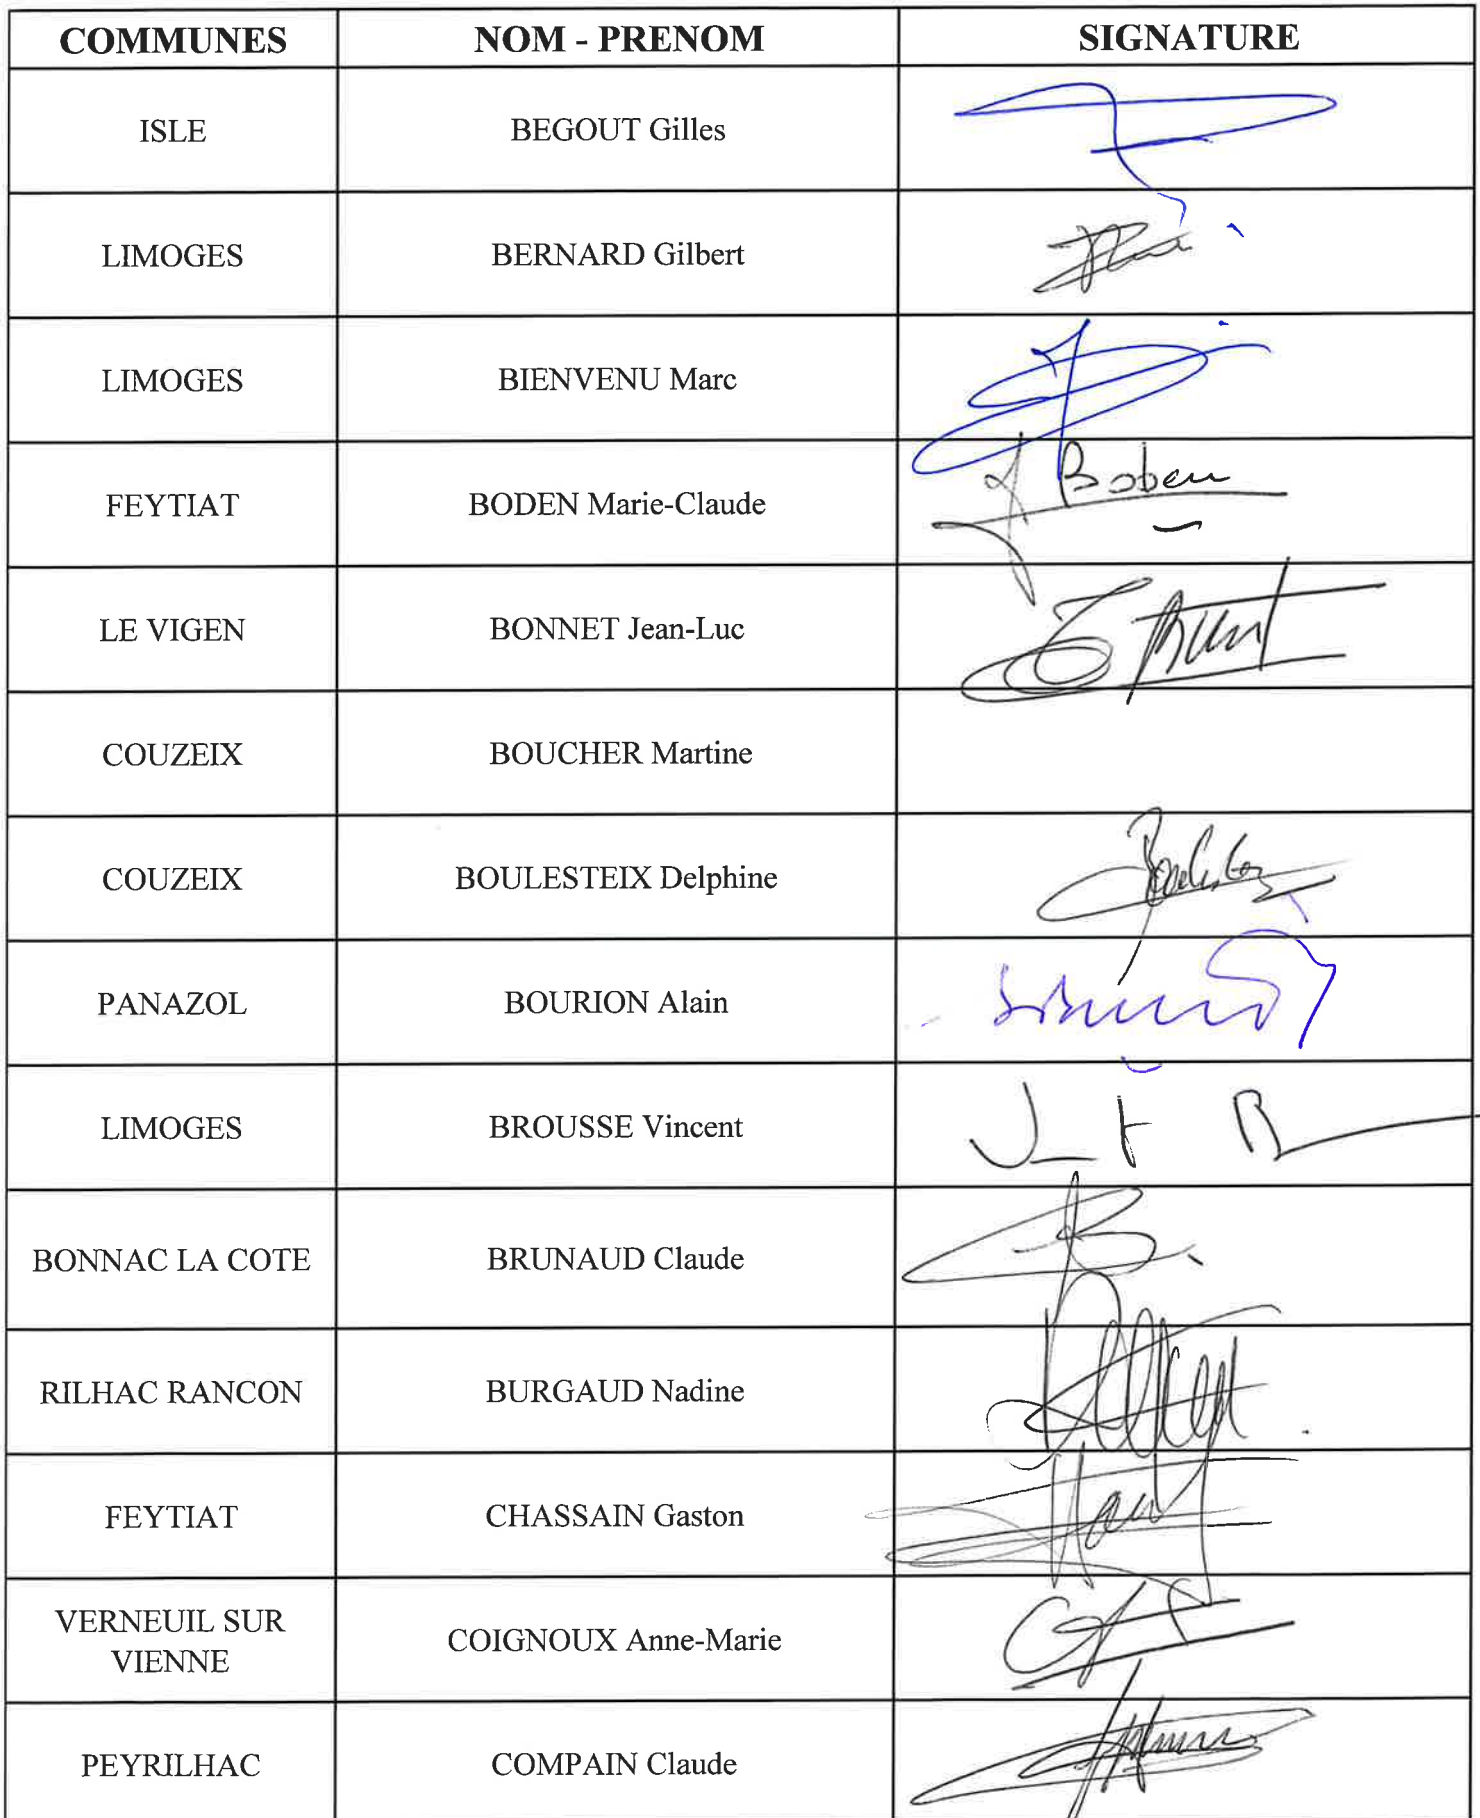 COMMUNES NOM - PRENOM SIGNATURE
ISLE BEGOUT Gilles
LIMOGES BERNARD Gilbert
LIMOGES BIENVENU Marc
FEYTIAT BODEN Marie-Claude Boden
LE VIGEN BONNET Jean-Luc
COUZEIX BOUCHER Martine
COUZEIX BOULESTEIX Delphine
PANAZOL BOURION Alain
LIMOGES BROUSSE Vincent
BONNAC LA COTE BRUNAUD Claude
RILHAC RANCON BURGAUD Nadine
FEYTIAT CHASSAIN Gaston
VERNEUIL SUR
VIENNE COIGNOUX Anne-Marie
PEYRILHAC COMPAIN Claude